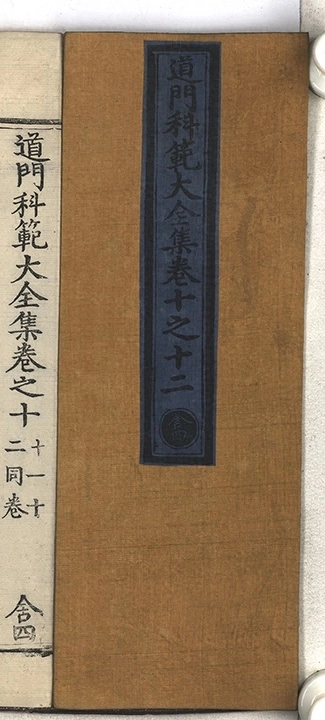 道門科範大全集卷十之十二
舍四
道門科範大全集卷之十
十一十
二同卷
舍四